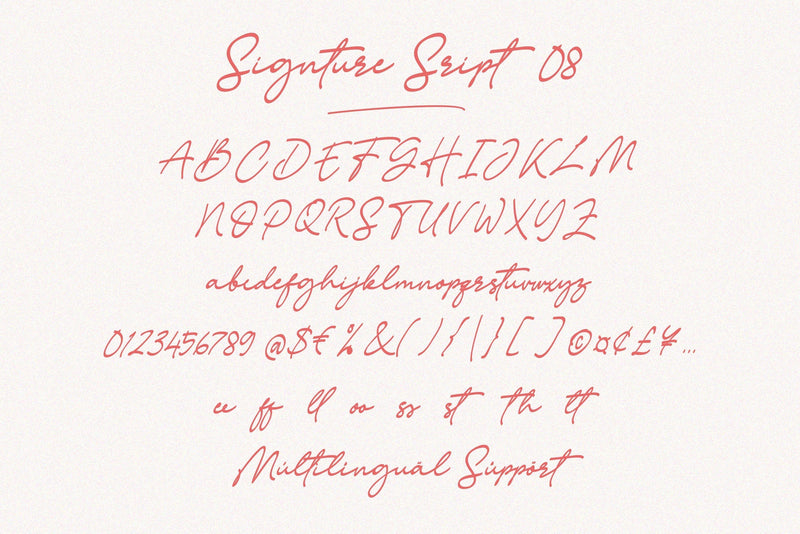 Signture Sript 08
ABCDEFGHIJKLM
NOPQRSTUVWXYZ
abcdefghijklmnopqrstuvwxyz
0123456789 @$€ %&( ) { | } [ ] ©¤¢£¥...
ee ff ll oo ss st th tt
Múltilinguäl Süppört